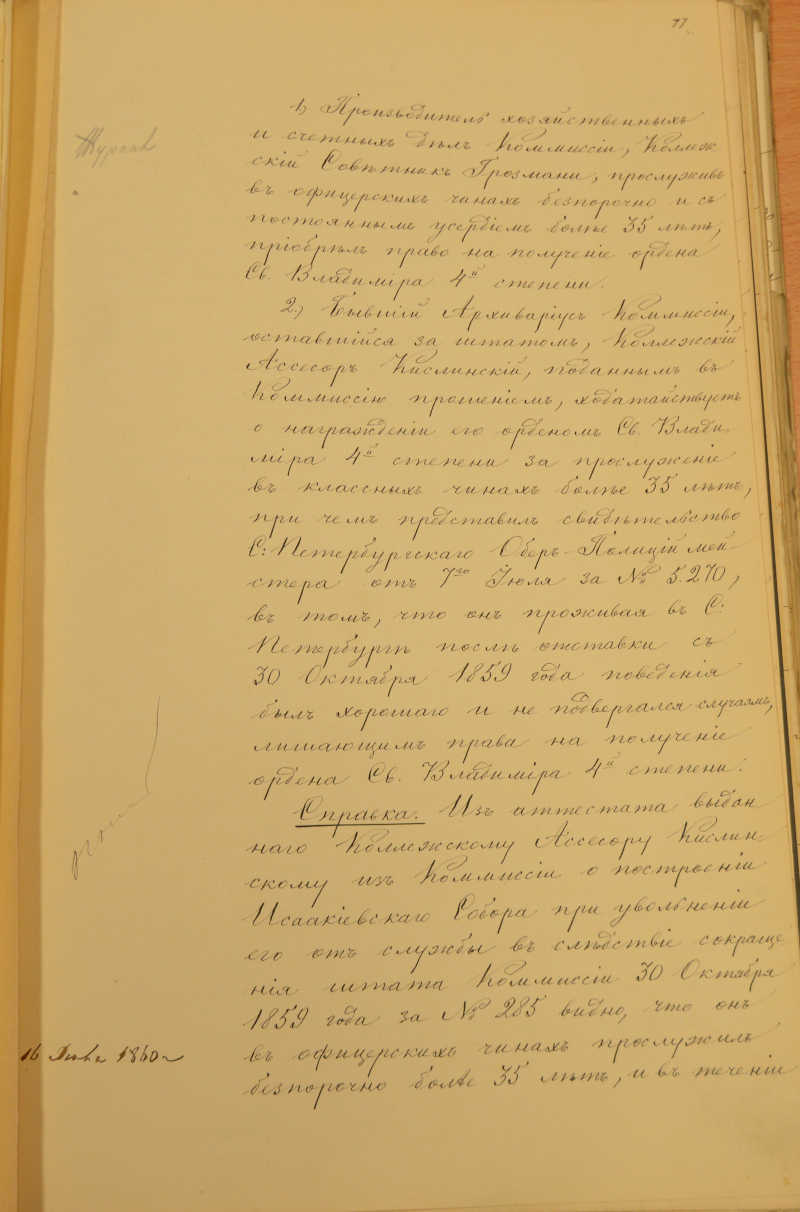 77
1) Производитель хозяйственныхъ
и счетныхъ дѣлъ Коммиссіи, Коллеж
скій Совѣтникъ Грозманъ, прослуживъ
въ офицерскихъ чинахъ безпорочно и съ
постояннымъ усердіемъ болѣе 35 лѣтъ,
пріобрѣлъ право на полученіе ордена
Св. Владиміра 4й степени.
2.) Бывшій Архиваріусъ Коммиссіи,
оставшійся за штатомъ, Коллежскій
Ассесоръ Кислинскій, поданнымъ въ
Коммиссію прошеніемъ, ходатайствуетъ
о награжденіи его орденомъ Св. Влади
міра 4й степени за прослуженіе
въ классныхъ чинахъ болѣе 35 лѣтъ,
при чемъ представилъ свидѣтельство
С: Петербургскаго Оберъ-Полиціймей
стера отъ 7го Іюля за № 5.270,
въ томъ, что онъ проживая въ С:
Петербургѣ послѣ отставки съ
30 Октября 1859 года поведенія
былъ хорошаго и не подвергался случаямъ,
лишающимъ права на полученіе
ордена Св. Владиміра 4й степени.
Справка. Изъ аттестата выдан
наго Коллежскому Ассесору Кислин
скому изъ Коммиссіи о построеніи
Исаакіевскаго Собора при увольненіи
его отъ службы въ слѣдствіе сокраще
нія штата Коммиссіи 30 Октября
1859 года за № 285 видно, что онъ
въ офицерскихъ чинахъ прослужилъ
безпорочно болѣе 35 лѣтъ, и въ теченіи
16 1860